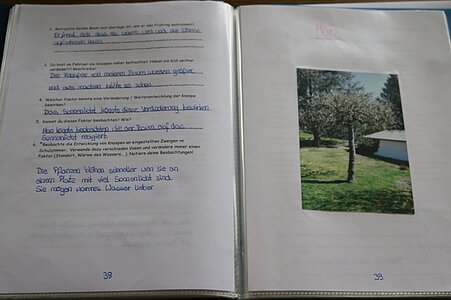 2. Betrachte deinen Baum und überlege dir, wie er den Frühling wahrnimmt?
Er freut sich das es warm und das die Sterne
aufblühen
3. Du hast im Februar die Knospen näher betrachtet. Haben sie sich seither
verändert? Beschreibe!
Die Knospen von meinem Baum wurden größer
und manche blühte es schon
4. Welcher Faktor könnte eine Veränderung / Weiterentwicklung der Knospe
bewirken?
Das Sonnenlicht könnte diese Veränderung bewirken
5. Kannst du diesen Faktor beobachten? Wie?
Man könnte beobachten wie der Baum auf das
Sonnenlicht reagiert
6. *Beobachte die Entwicklung von Knospen an eingestellten Zweigen im
Schulzimmer. Verwende dazu verschieden Vasen und verändere immer einen
Faktor (Standort, Wärme des Wassers...). Notiere deine Beobachtungen!
Die Pflanzen blühen schneller wen sie an
einem Platz mit viel Sonnenlicht sind.
Sie mögen warmes Wasser lieber
38
März
39